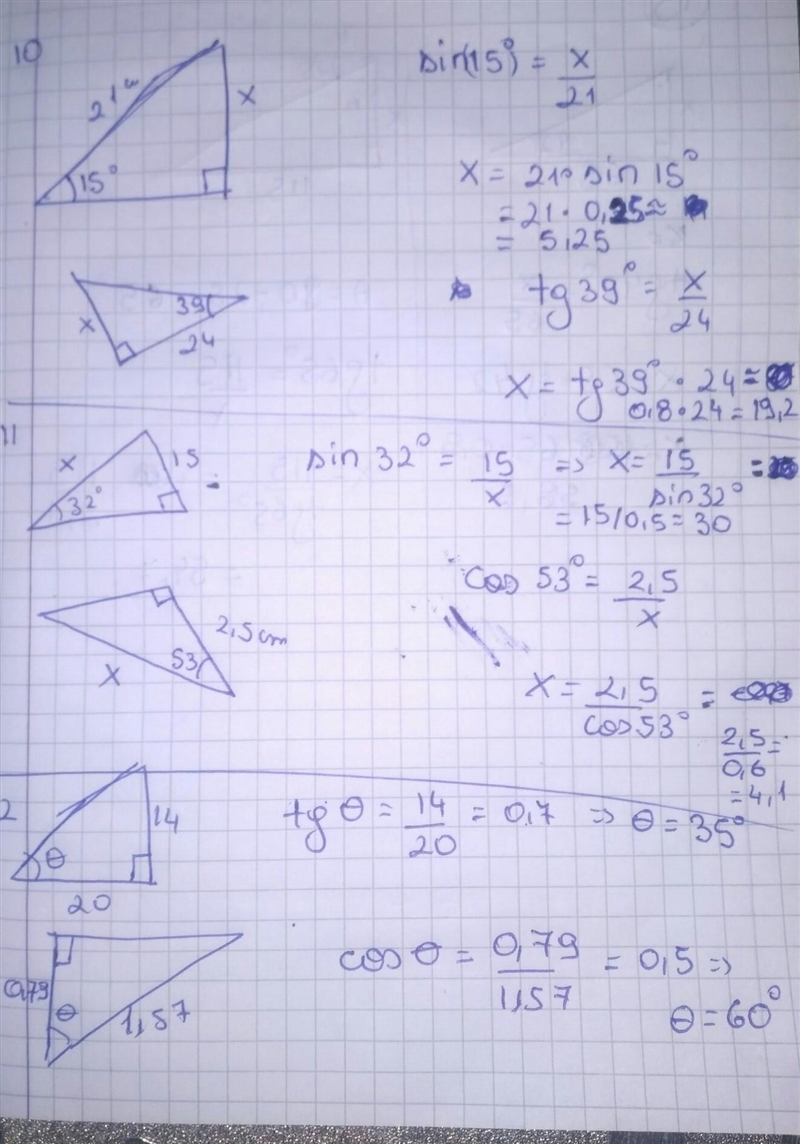 10
21 x
15°
sin(15°) = x/21
x = 21° sin 15°
= 21 · 0,25 ≈
= 5,25
39
x
24
tg 39° = x/24
x = tg 39° · 24 ≈
0,8 · 24 = 19,2
11
x 15
32°
sin 32° = 15/x => x = 15/sin 32° =
= 15/0,5 = 30
2,5 cm
53
x
cos 53° = 2,5/x
x = 2,5/cos 53° =
2,5/0,6 =
= 4,1
2
14
θ
20
tg θ = 14/20 = 0,7 => θ = 35°
0,79
θ
1,57
cos θ = 0,79/1,57 = 0,5 =>
θ = 60°